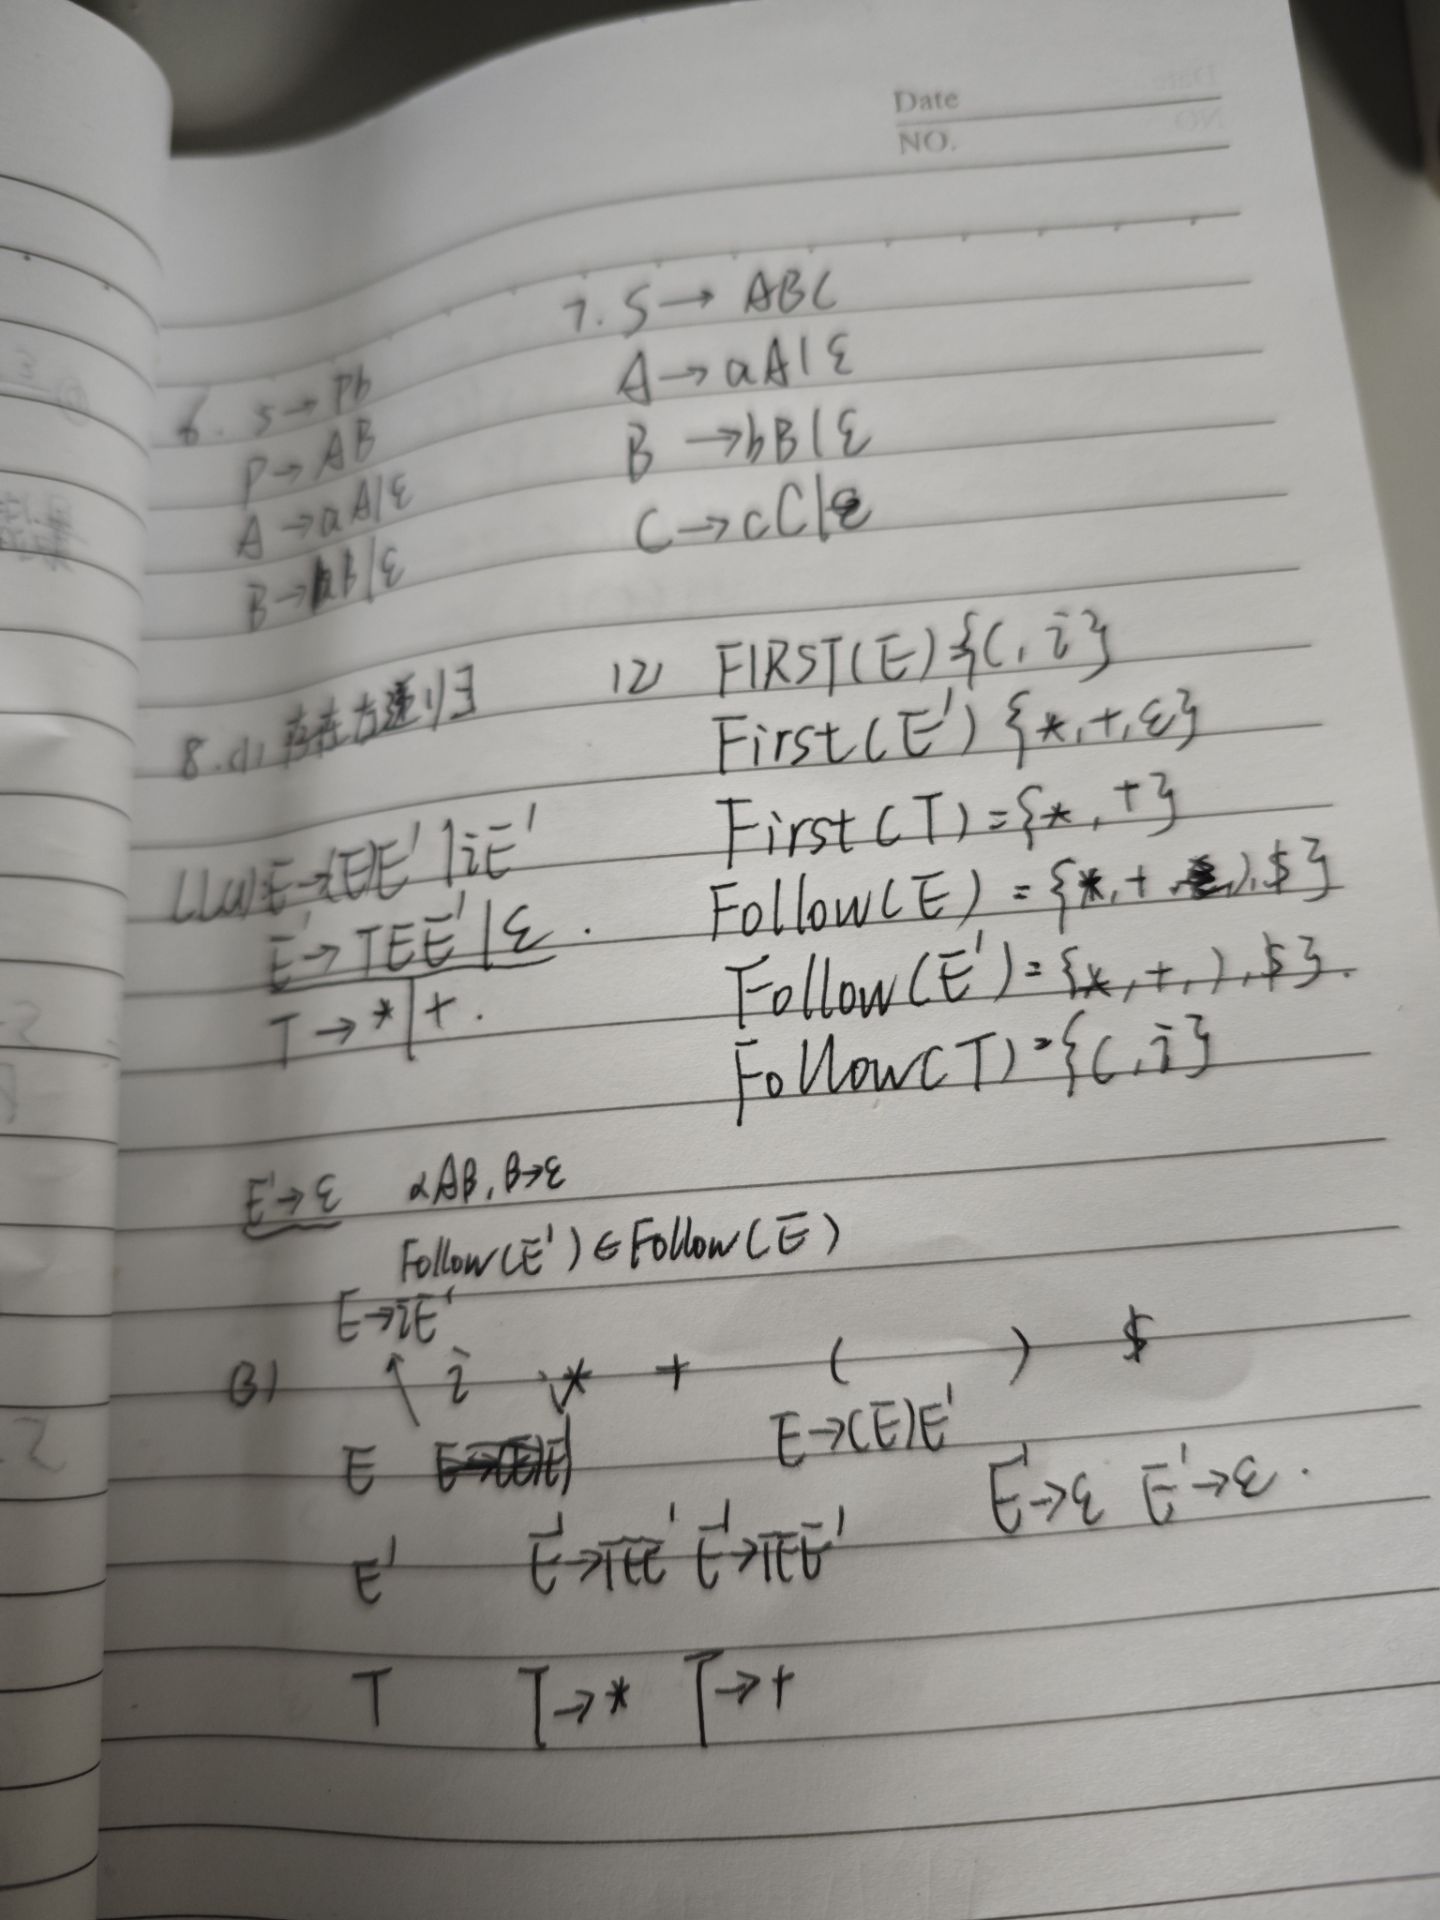 Date
NO.
6. S→Pb
P→AB
A→aA|ε
B→bB|ε
7. S→ABC
A→aA|ε
B→bB|ε
C→cC|ε
8.(1) 存在左递归
LL(1): E→(E)E'|iE'
E'→TEE'|ε.
T→*|+.
(2) FIRST(E){(,i}
First(E'){*,+,ε}
First(T)={*,+}
Follow(E)={*,+,),$}
Follow(E')={*,+,),$}.
Follow(T)={(,i}
E'→ε αAB,B→ε
Follow(E')∈Follow(E)
E→iE'
(3) i * + ( ) $
E E→(E)E'
E' E'→TEE' E'→TEE' E'→ε E'→ε.
T T→* T→+